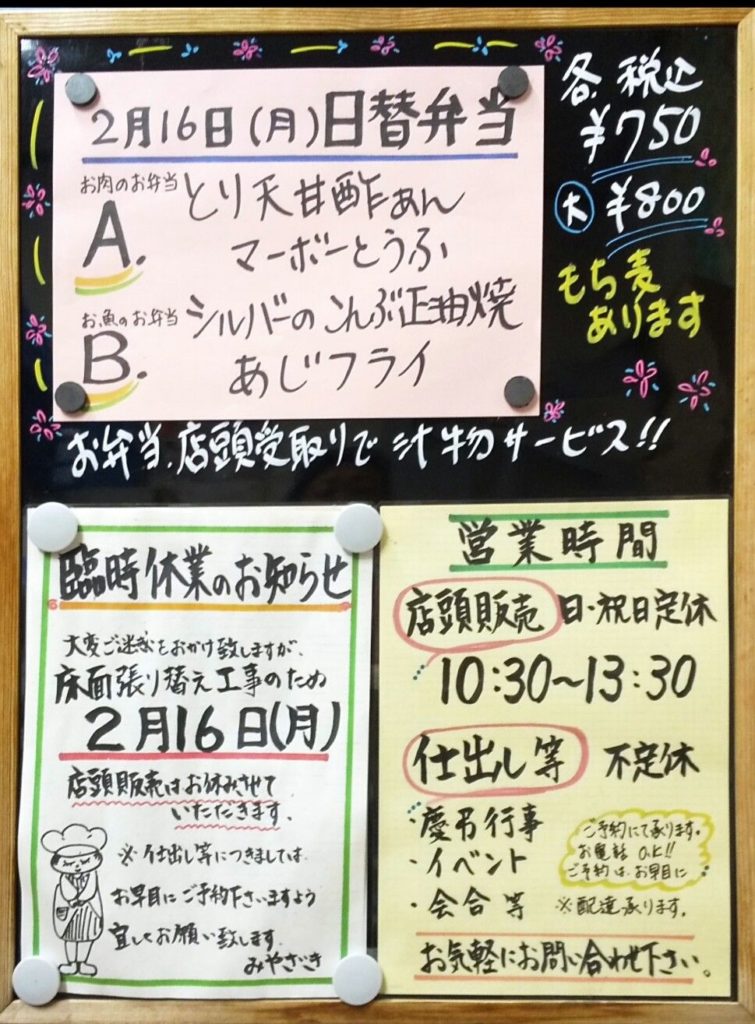 2月16日(月)日替弁当
お肉のお弁当
A.
とり天甘酢あん
マーボーとうふ
お魚のお弁当
B.
シルバーのこんぶ正油焼
あじフライ
各税込
¥750
大 ¥800
もち麦
あります
お弁当、店頭受取りで汁物サービス!!
臨時休業のお知らせ
大変ご迷惑をおかけ致しますが、
床面張り替え工事のため
2月16日(月)
店頭販売はお休みさせて
いただきます。
※仕出し等につきましては
お早目にご予約下さいますよう
宜しくお願い致します。
みやざき
営業時間
店頭販売 日・祝日定休
10:30〜13:30
仕出し等 不定休
・慶弔行事
・イベント
・会合等
ご予約にて承ります。
お電話OK!!
ご予約はお早目に
※配達承ります。
お気軽にお問い合わせ下さい。